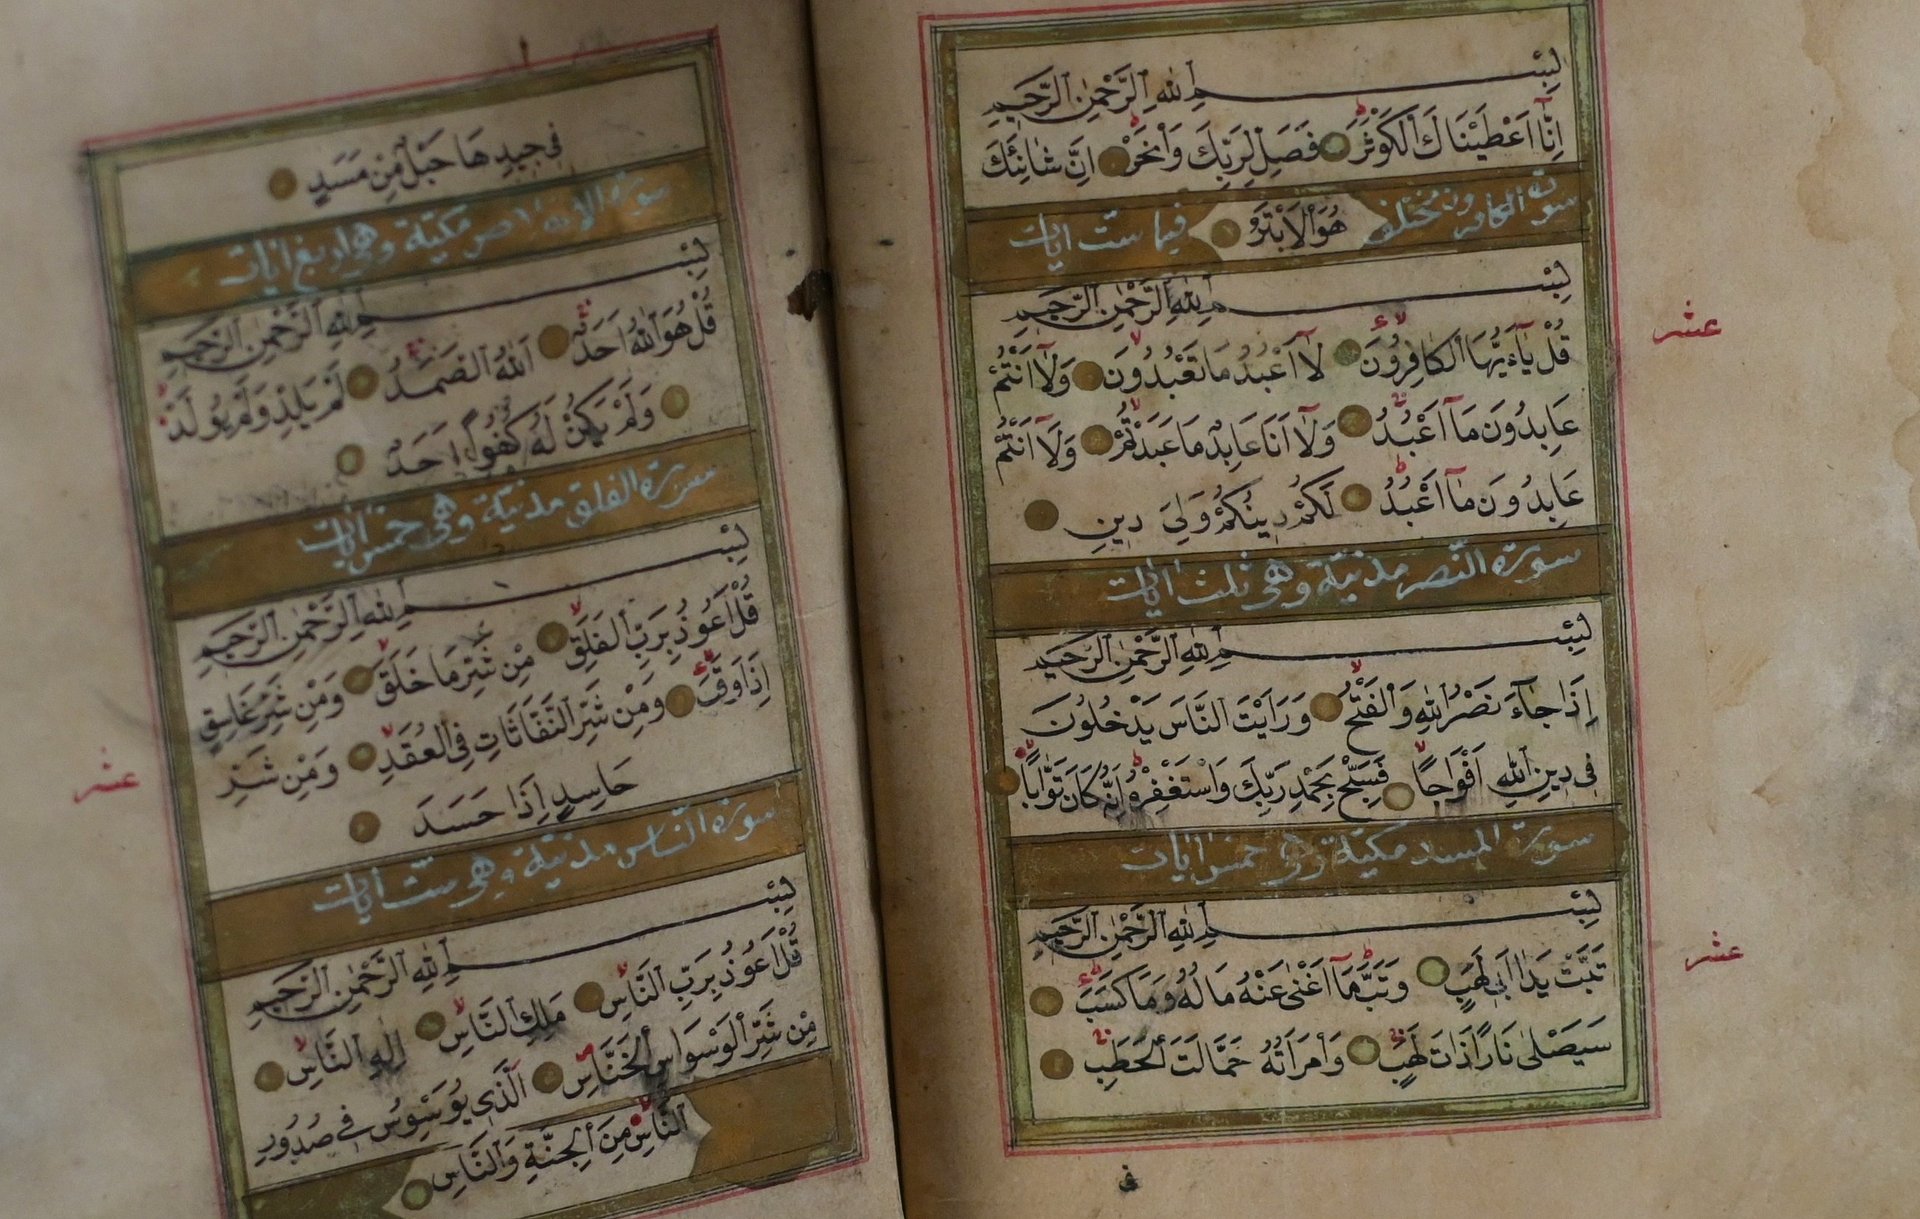 بِسْمِ اللهِ الرَّحْمٰنِ الرَّحِيمِ
اِنَّٓا اَعْطَيْنَاكَ الْكَوْثَرَ فَصَلِّ لِرَبِّكَ وَانْحَرْ اِنَّ شَانِئَكَ
هُوَ الْاَبْتَرُ
سورة الكافرون مختلف فيها ست ايات
بِسْمِ اللهِ الرَّحْمٰنِ الرَّحِيمِ
قُلْ يَٓا اَيُّهَا الْكَافِرُونَ لَٓا اَعْبُدُ مَا تَعْبُدُونَ وَلَٓا اَنْتُمْ
عَابِدُونَ مَٓا اَعْبُدُ وَلَٓا اَنَا عَابِدٌ مَا عَبَدْتُمْ وَلَٓا اَنْتُمْ
عَابِدُونَ مَٓا اَعْبُدُ لَكُمْ دِينُكُمْ وَلِيَ دِينِ
سورة النصر مدنية وهي ثلث ايات
بِسْمِ اللهِ الرَّحْمٰنِ الرَّحِيمِ
اِذَا جَٓاءَ نَصْرُ اللهِ وَالْفَتْحُ وَرَاَيْتَ النَّاسَ يَدْخُلُونَ
فِي دِينِ اللهِ اَفْوَاجًا فَسَبِّحْ بِحَمْدِ رَبِّكَ وَاسْتَغْفِرْهُ اِنَّهُ كَانَ تَوَّابًا
سورة المسد مكية وهي خمس ايات
بِسْمِ اللهِ الرَّحْمٰنِ الرَّحِيمِ
تَبَّتْ يَدَٓا اَبِي لَهَبٍ وَتَبَّ مَٓا اَغْنٰى عَنْهُ مَالُهُ وَمَا كَسَبَ
سَيَصْلٰى نَارًا ذَاتَ لَهَبٍ وَامْرَاَتُهُ حَمَّالَتَ الْحَطَبِ
عشر
عشر
فى
فِي جِيدِهَا حَبْلٌ مِنْ مَسَدٍ
سورة الاخلاص مكية وهي اربع ايات
بِسْمِ اللهِ الرَّحْمٰنِ الرَّحِيمِ
قُلْ هُوَ اللهُ اَحَدٌ اَللهُ الصَّمَدُ لَمْ يَلِدْ وَلَمْ يُولَدْ
وَلَمْ يَكُنْ لَهُ كُفُوًا اَحَدٌ
سورة الفلق مدنية وهي خمس ايات
بِسْمِ اللهِ الرَّحْمٰنِ الرَّحِيمِ
قُلْ اَعُوذُ بِرَبِّ الْفَلَقِ مِنْ شَرِّ مَا خَلَقَ وَمِنْ شَرِّ غَاسِقٍ
اِذَا وَقَبَ وَمِنْ شَرِّ النَّفَّاثَاتِ فِي الْعُقَدِ وَمِنْ شَرِّ
حَاسِدٍ اِذَا حَسَدَ
سورة الناس مدنية وهي ست ايات
بِسْمِ اللهِ الرَّحْمٰنِ الرَّحِيمِ
قُلْ اَعُوذُ بِرَبِّ النَّاسِ مَلِكِ النَّاسِ اِلٰهِ النَّاسِ
مِنْ شَرِّ الْوَسْوَاسِ الْخَنَّاسِ اَلَّذِي يُوَسْوِسُ فِي صُدُورِ
النَّاسِ مِنَ الْجِنَّةِ وَالنَّاسِ
عشر